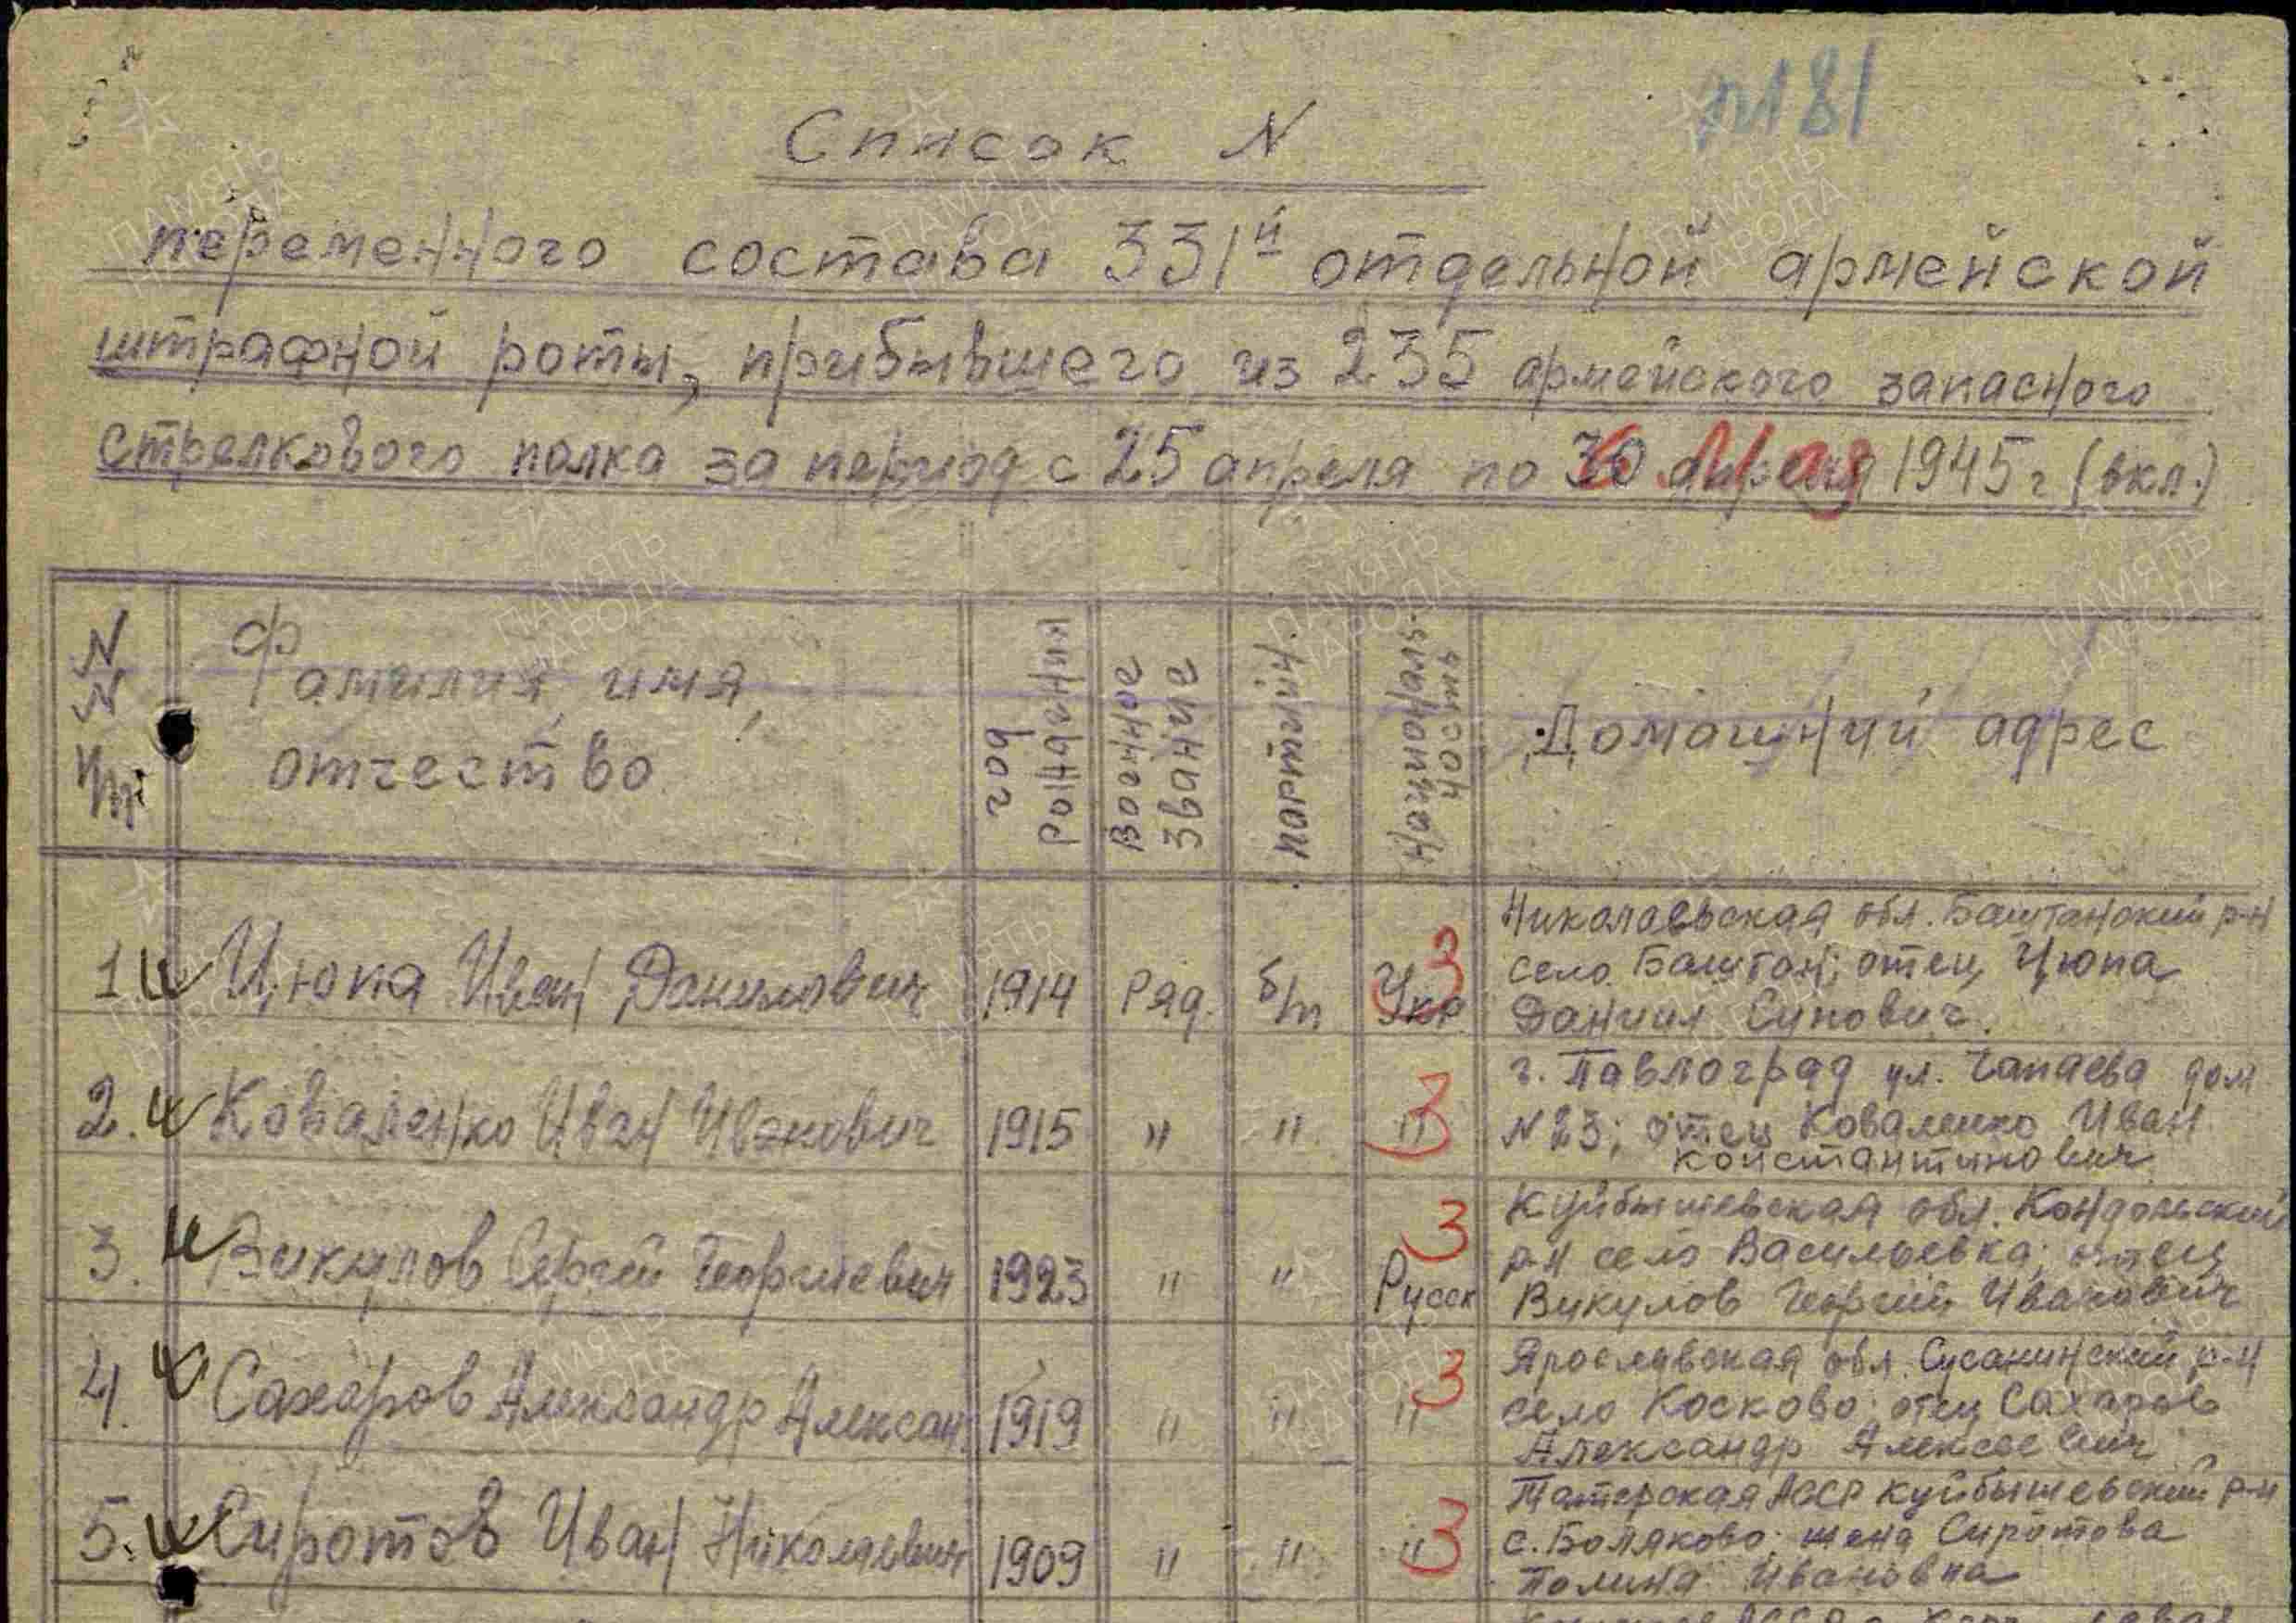 п181
Список N
переменного состава 331й отдельной армейской
штрафной роты, прибывшего из 235 армейского запасного
стрелкового полка за период с 25 апреля по 1945 г (вкл.)
NN п/п
Фамилия, имя, отчество
год рождения
Военное звание
партийн.
национальность
Домашний адрес
1. Цюпа Иван Данилович 1914 Ряд. б/п Укр 3
Николаевская обл. Баштанский р-н
село Баштан; отец Цюпа
Даниил
2. Коваленко Иван Иванович 1915 " " " 3
г. Павлоград ул. Чапаева дом
N 23; отец Коваленко Иван
Константинович
3. Викулов Сергей Георгиевич 1923 " " Русск 3
Куйбышевская обл. Кондольский
р-н село Васильевка; отец
Викулов Георгий Иванович
4. Сахаров Александр Алексан. 1919 " " " 3
Ярославская обл. Сусанинский р-н
село Косково; отец Сахаров
Александр Алексеевич
5. Сиротов Иван Николаевич 1909 " " " 3
Татарская АССР Куйбышевский р-н
с. Боляково; жена Сиротова
Полина Ивановна
ПАМЯТЬ
НАРОДА